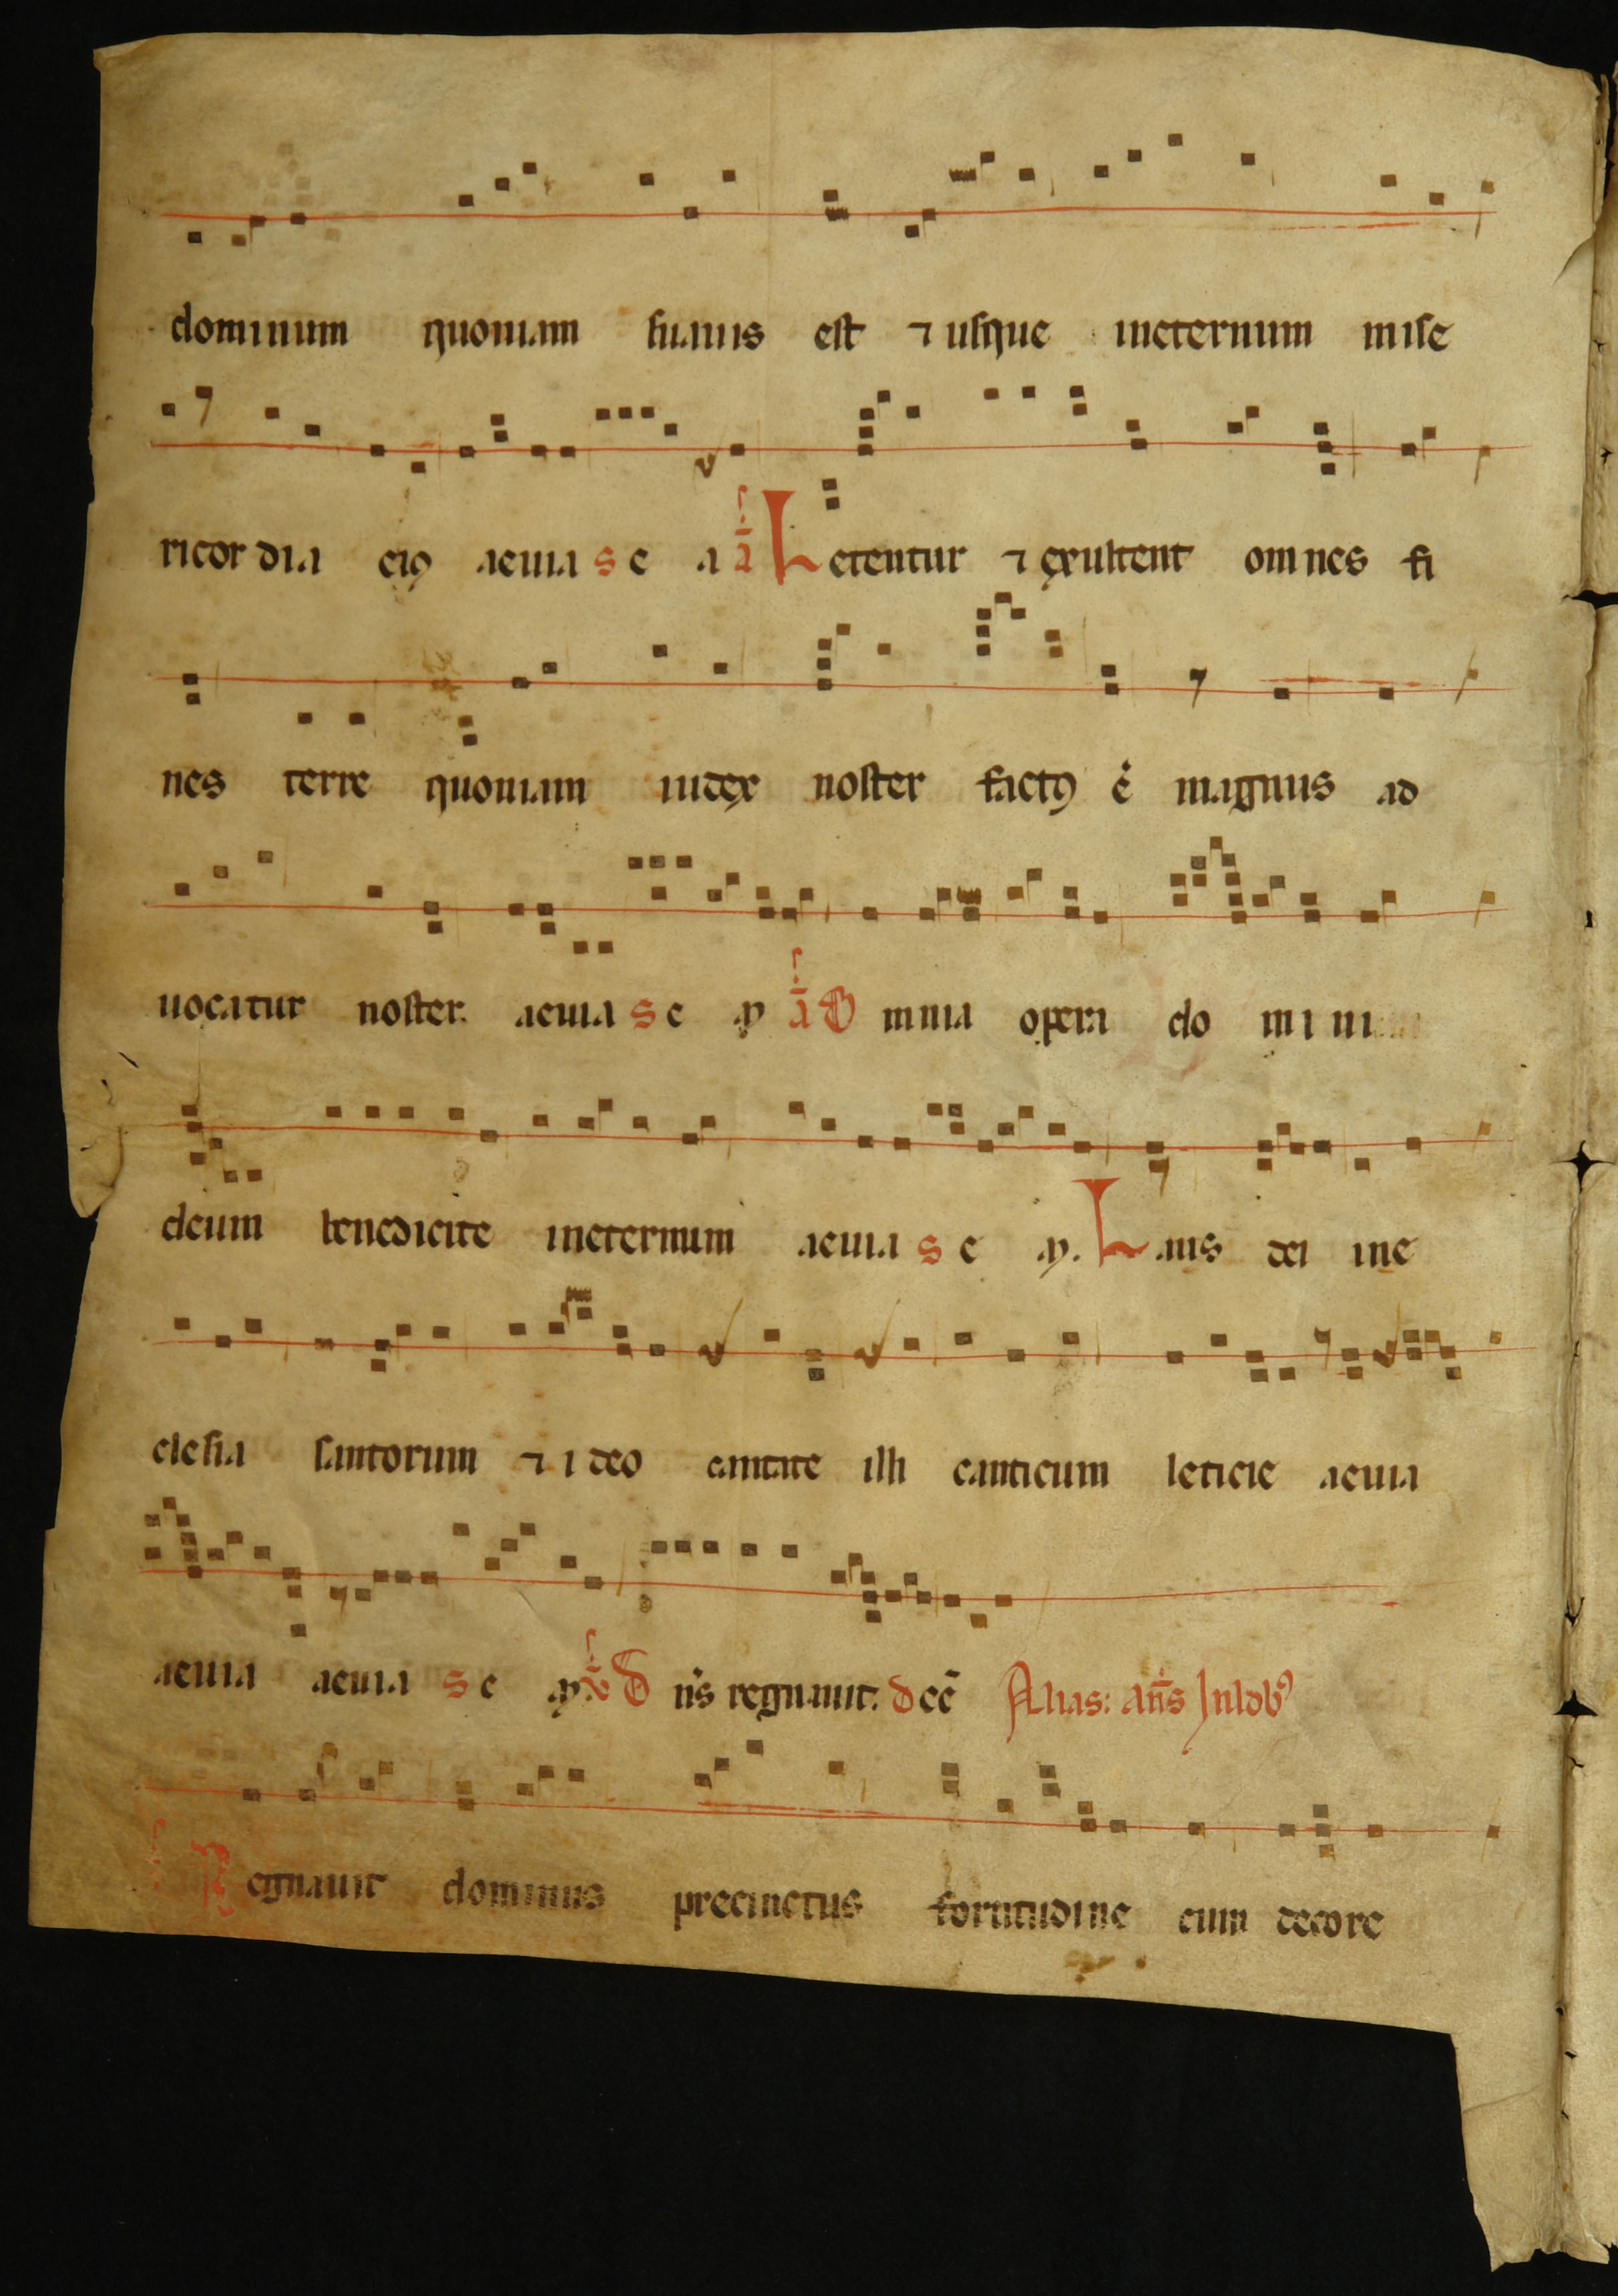 dominum quoniam suauis est ⁊ usque ineternum mise
ricordia eiꝯ aeuia s e a ā Letentur ⁊ exultent omnes fi
nes terre quoniam iudex noster factꝯ ē magnus ad
uocatur noster. aeuia s e p ā Omnia opera do mini
deum benedicite ineternum aeuia s e p. Laus dei ine
clesia santorum ⁊ ideo cantate illi canticum leticie aeuia
aeuia aeuia s e p ā Dn̄s regnauit. d ec̄ Alias: an̄s
Regnauit dominus precinctus fortitudine cum decore